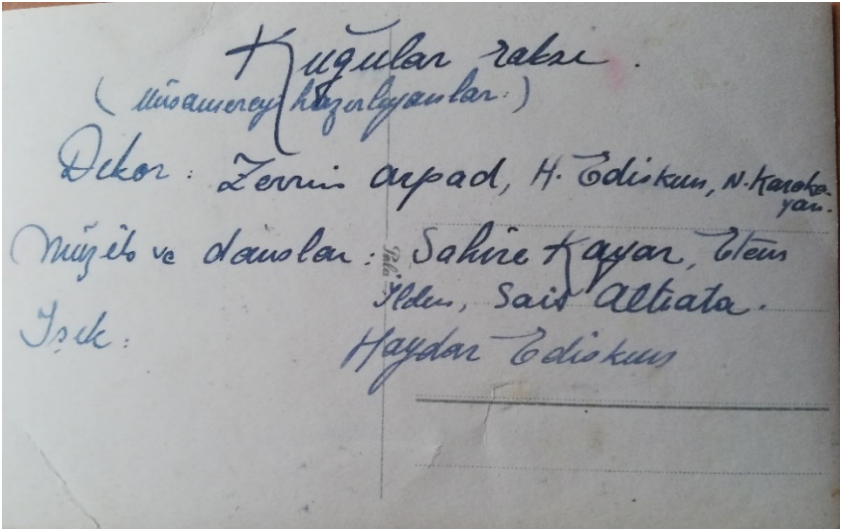 Kuğular raksı.
(Müsamereyi hazırlayanlar.)
Dekor: Zerrin Arpad, H. Ediskun, N. Karako-
yan.
Müzik ve danslar: Sahire Kayar, Etem
İlden, Sait Altıata.
Işık: Haydar Ediskun